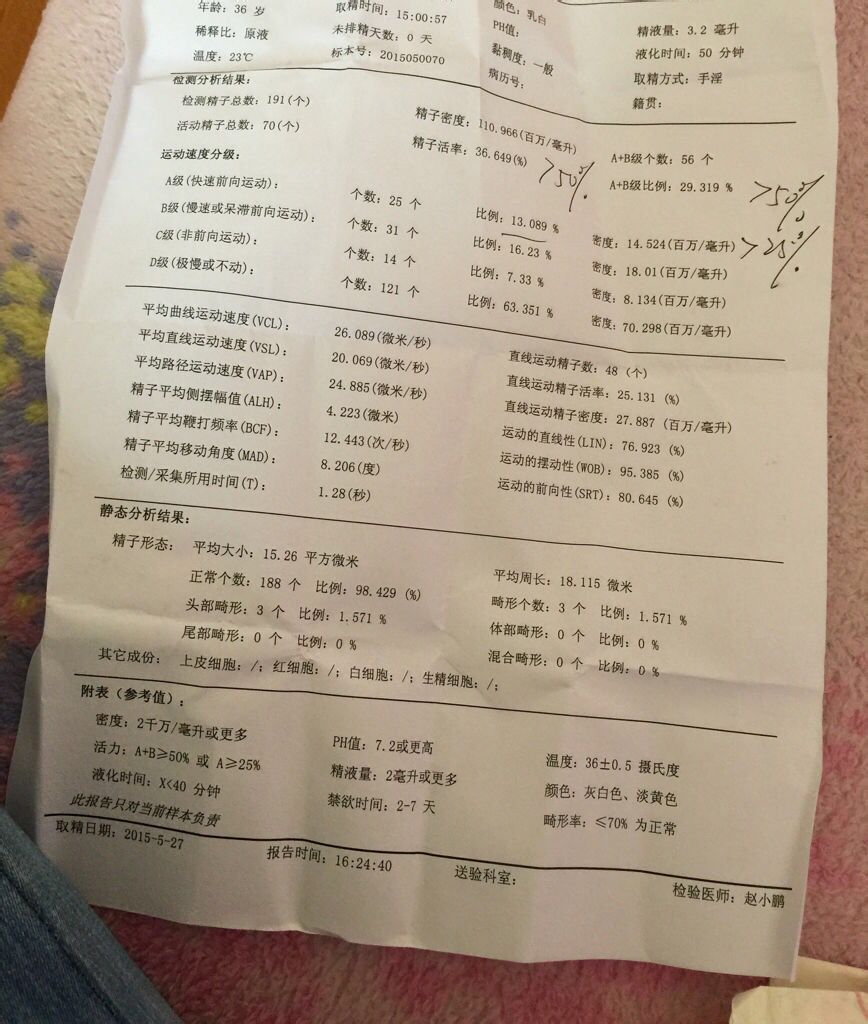 年龄：36 岁 取精时间：15:00:57 颜色：乳白 精液量：3.2 毫升
稀释比：原液 未排精天数：0 天 PH值： 液化时间：50 分钟
温度：23℃ 标本号：2015050070 黏稠度：一般 取精方式：手淫
病历号： 籍贯：
检测分析结果：
检测精子总数：191(个) 精子密度：110.966(百万/毫升) A+B级个数：56 个
活动精子总数：70(个) 精子活率：36.649(%) >50% A+B级比例：29.319 % >50%
运动速度分级：
A级(快速前向运动)： 个数：25 个 比例：13.089 % 密度：14.524(百万/毫升) >25%
B级(慢速或呆滞前向运动)： 个数：31 个 比例：16.23 % 密度：18.01(百万/毫升)
C级(非前向运动)： 个数：14 个 比例：7.33 % 密度：8.134(百万/毫升)
D级(极慢或不动)： 个数：121 个 比例：63.351 % 密度：70.298(百万/毫升)
平均曲线运动速度(VCL)： 26.089(微米/秒) 直线运动精子数：48 (个)
平均直线运动速度(VSL)： 20.069(微米/秒) 直线运动精子活率：25.131 (%)
平均路径运动速度(VAP)： 24.885(微米/秒) 直线运动精子密度：27.887 (百万/毫升)
精子平均侧摆幅值(ALH)： 4.223(微米) 运动的直线性(LIN)：76.923 (%)
精子平均鞭打频率(BCF)： 12.443(次/秒) 运动的摆动性(WOB)：95.385 (%)
精子平均移动角度(MAD)： 8.206(度) 运动的前向性(SRT)：80.645 (%)
检测/采集所用时间(T)： 1.28(秒)
静态分析结果：
精子形态： 平均大小：15.26 平方微米 平均周长：18.115 微米
正常个数：188 个 比例：98.429 (%) 畸形个数：3 个 比例：1.571 %
头部畸形：3 个 比例：1.571 % 体部畸形：0 个 比例：0 %
尾部畸形：0 个 比例：0 % 混合畸形：0 个 比例：0 %
其它成份： 上皮细胞：/；红细胞：/；白细胞：/；生精细胞：/；
附表（参考值）：
密度：2千万/毫升或更多 PH值：7.2或更高 温度：36±0.5 摄氏度
活力：A+B≥50% 或 A≥25% 精液量：2毫升或更多 颜色：灰白色、淡黄色
液化时间：X<40 分钟 禁欲时间：2-7 天 畸形率：≤70% 为正常
此报告只对当前样本负责
取精日期：2015-5-27 报告时间：16:24:40 送验科室： 检验医师：赵小鹏